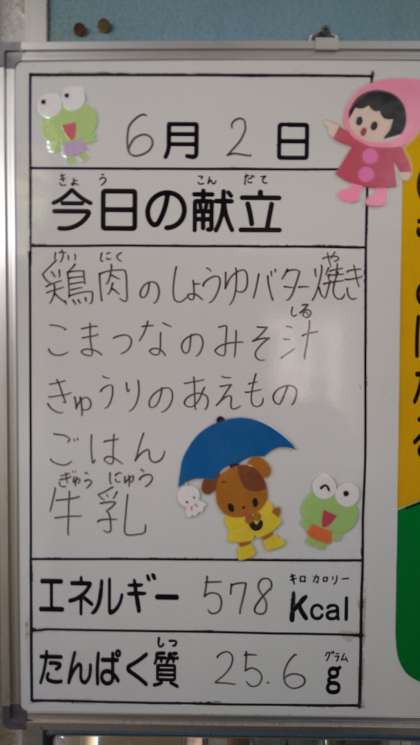 6月2日
きょう こんだて
今日の献立
けいにく や
鶏肉のしょうゆバター焼き
しる
こまつなのみそ汁
きゅうりのあえもの
ごはん
ぎゅうにゅう
牛乳
キロカロリー
エネルギー 578 Kcal
しつ グラム
たんぱく質 25.6 g